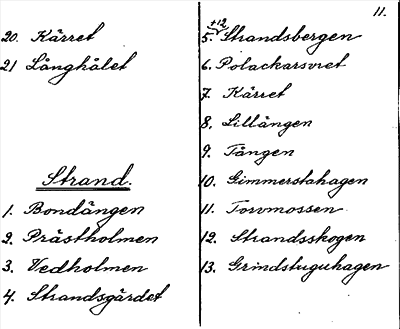 20. Kärret
21 Långhålet
Strand.
1. Bondängen
2. Prästholmen
3. Vedholmen
4. Strandsgärdet
11.
+12
5. Strandsbergen
6. Polackarsvret
7. Kärret
8. Lillängen
9. Tängen
10. Gimmerstahagen
11. Torvmossen
12. Strandsskogen
13. Grindstuguhagen